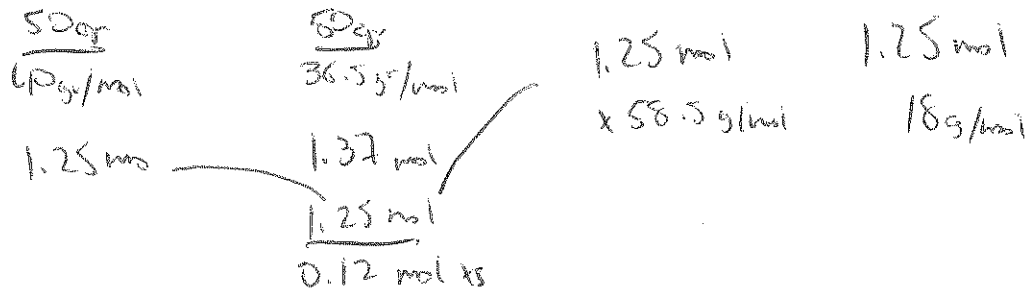 50gr
40gr/mol
1.25 mo
50gr
36.5 gr/mol
1.37 mol
1.25 mol
0.12 mol xs
1.25 mol
x 58.5 g/mol
1.25 mol
18 g/mol